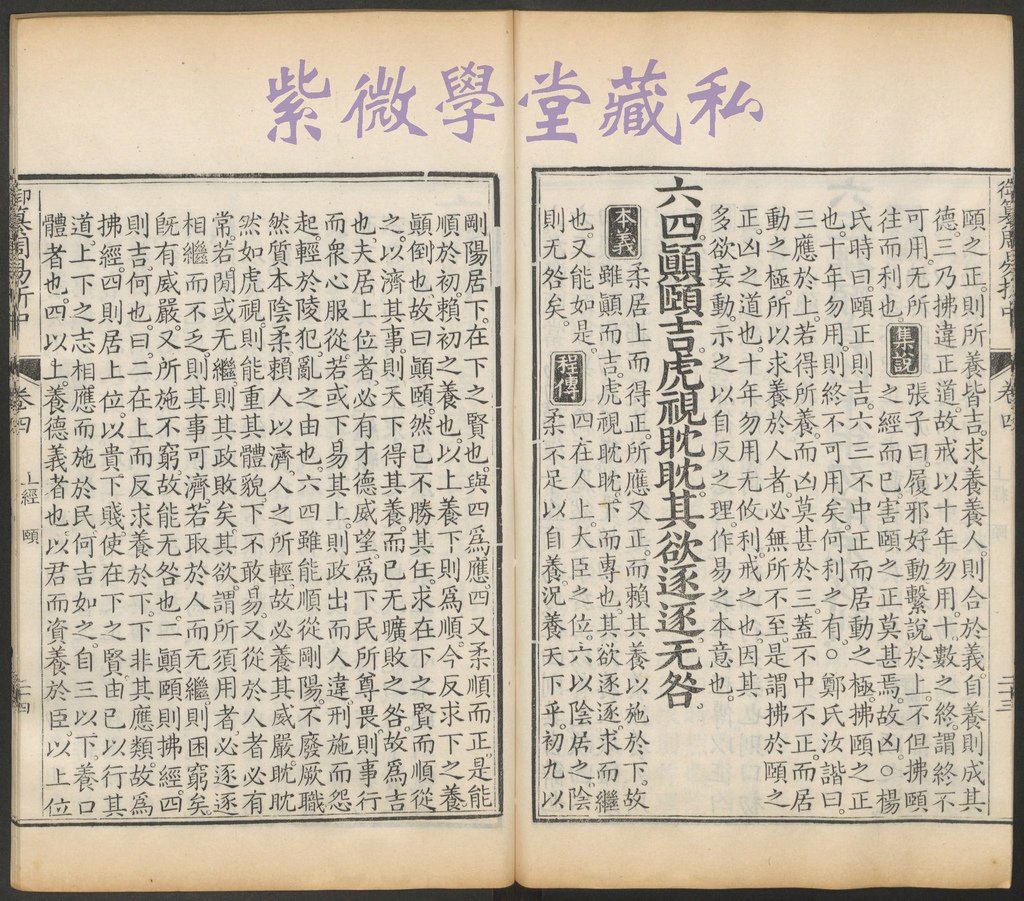 紫微學堂藏私
頤之正。則所養皆吉。求養養人。則合於義。自養則成其
德。三乃拂違正道。故戒以十年勿用。十數之終。謂終不
可用。无所
往而利也。
集說
張子曰。履邪好動。繫說於上。不但拂頤
之經而已。害頤之正莫甚焉。故凶。○楊
氏時曰。頤正則吉。六三不中正而居動之極。拂頤之正
也。十年勿用。則終不可用矣。何利之有。○鄭氏汝諧曰。
三應於上。若得所養。而凶莫甚於三。蓋不中不正而居
動之極。所以求養於人者。必無所不至。是謂拂於頤之
正。凶之道也。十年勿用。无攸利。戒之也。因其
多欲妄動。示之以自反之理。作易之本意也。
六四。顚頤吉。虎視眈眈。其欲逐逐。无咎。
本義
柔居上而得正。所應又正。而賴其養以施於下。故
雖顚而吉。虎視眈眈。下而專也。其欲逐逐。求而繼
也。又能如是。
則无咎矣。
程傳
四在人上。大臣之位。六以陰居之。陰
柔不足以自養。況養天下乎。初九以
剛陽居下。在下之賢也。與四爲應。四又柔順而正。是能
順於初。賴初之養也。以上養下則爲順。今反求下之養。
顚倒也。故曰顚頤。然己不勝其任。求在下之賢而順從
之。以濟其事。則天下得其養。而己无曠敗之咎。故爲吉
也。夫居上位者。必有才德威望。爲下民所尊畏。則事行
而衆心服從。若或下易其上。則政出而人違。刑施而怨
起。輕於陵犯。亂之由也。六四雖能順從剛陽。不廢厥職。
然質本陰柔。賴人以濟。人之所輕。故必養其威嚴。眈眈
然如虎視。則能重其體貌。下不敢易。又從於人者必有
常。若閒或无繼。則其政敗矣。其欲。謂所須用者。必逐逐
相繼而不乏。則其事可濟。若取於人而无繼。則困窮矣。
旣有威嚴。又所施不窮。故能无咎也。二顚頤則拂經。四
則吉何也。曰。二在上而反求養於下。下非其應類。故爲
拂經。四則居上位。以貴下賤。使在下之賢。由己以行其
道。上下之志相應。而施於民。何吉如之。自三以下。養口
體者也。四以上。養德義者也。以君而資養於臣。以上位
卷四
上經 頤